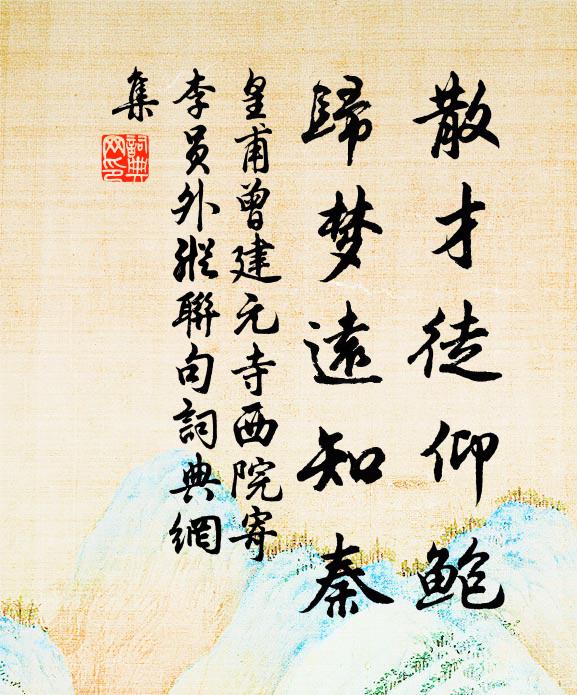 散才徒仰鲍
歸梦遠知秦
皇甫曾建元寺西院寄
李员外縱聯句詞典網
集
詞典网印